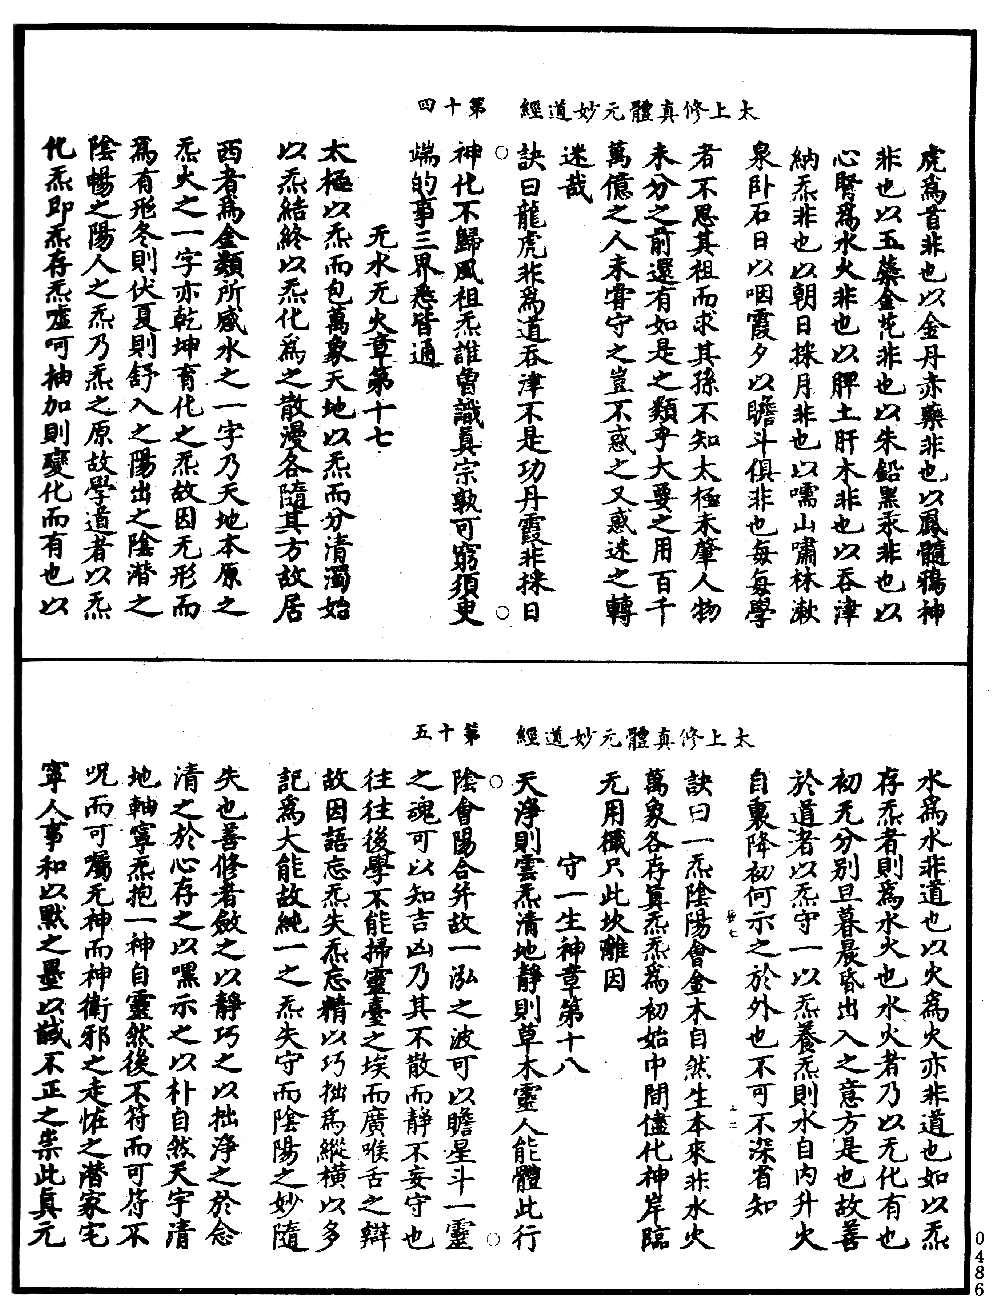 太上修真體元妙道經　第十四
虎爲首非也以金丹赤藥非也以鳳髓鵶神
非也以玉蘂金花非也以朱鉛黑汞非也以
心腎爲水火非也以脾土肝木非也以吞津
納炁非也以朝日採月非也以嚅山嘯林漱
泉卧石日以咽霞夕以瞻斗俱非也每每學
者不思其祖而求其孫不知太極未肇人物
未分之前還有如是之類乎大要之用百千
萬億之人未甞守之豈不惑之又惑迷之轉
迷哉
訣曰龍虎非爲道吞津不是功丹霞非採日
神化不歸風祖炁誰曾識眞宗孰可窮須臾
端的事三界悉皆通
无水无火章第十七
太極以炁而包萬象天地以炁而分清濁始
以炁結終以炁化爲之散漫各隨其方故居
西者爲金類所感水之一字乃天地本原之
炁火之一字亦乾坤育化之炁故因无形而
爲有形冬則伏夏則舒入之陽出之陰潜之
陰暢之陽人之炁乃炁之原故學道者以炁
化炁即炁存炁噓呵抽加則變化而有也以
太上修真體元妙道經　第十五
水爲水非道也以火爲火亦非道也如以炁
存炁者則爲水火也水火者乃以无化有也
初无分别旦暮晨昏出入之意方是也故善
於道者以炁守一以炁養炁則水自内升火
自裏降初何示之於外也不可不深省知
訣曰一炁陰陽會金木自然生本來非水火
萬象各存眞炁炁爲初始中間儘化神岸臨
无用檥只此坎離因
守一生神章第十八
天淨則雲炁清地靜則草木靈人能體此行
陰會陽合并故一泓之波可以瞻星斗一靈
之魂可以知吉凶乃其不散而靜不妄守也
往往後學不能掃靈臺之埃而廣喉舌之辯
故因語忘炁失炁忘精以巧拙爲縱横以多
記爲大能故純一之炁失守而陰陽之妙隨
失也善修者斂之以靜巧之以拙淨之於念
清之於心存之以嘿示之以朴自然天宇清
地軸寧炁抱一神自靈然後不符而可符不
呪而可囑无神而神衛邪之走怪之潜家宅
寧人事和以默之墨以誠不正之祟此眞元
0486